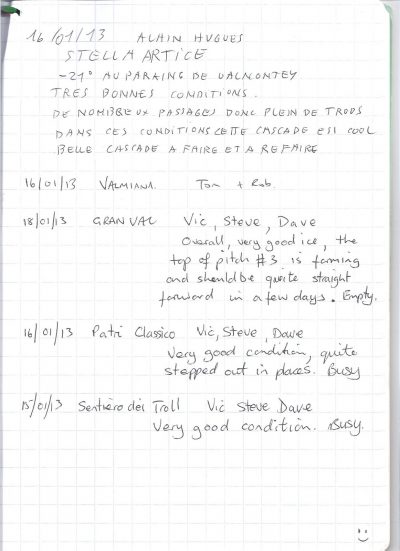 16/01/13 ALAIN HUGUES
STELLA ARTICE
-21° AU PARKING DE VALNONTEY
TRES BONNES CONDITIONS.
DE NOMBREUX PASSAGES DONC PLEIN DE TROUS
DANS CES CONDITIONS CETTE CASCADE EST COOL
BELLE CASCADE A FAIRE ET A REFAIRE
16/01/13 VALMIANA. Tom + Rob.
18/01/13 GRAN VAL Vic, Steve, Dave
Overall, very good ice, the
top of pitch #3 is forming
and should be quite straight
forward in a few days. Empty.
16/01/13 Patri Classico Vic, Steve, Dave
Very good condition, quite
stepped out in places. Busy
15/01/13 Sentiero dei Troll Vic Steve Dave
Very good condition. Busy.